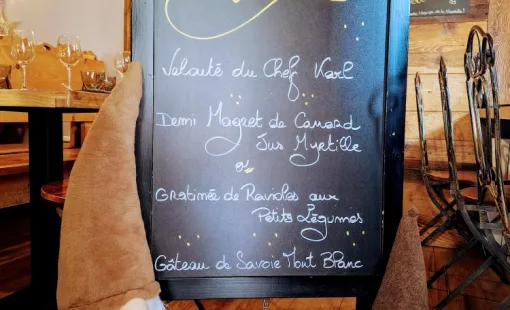 Velouté du Chef Karl
Demi Magret de Canard
Jus Myrtille
ou
Gratinée de Ravioles aux
Petits Légumes
Gâteau de Savoie Mont Blanc